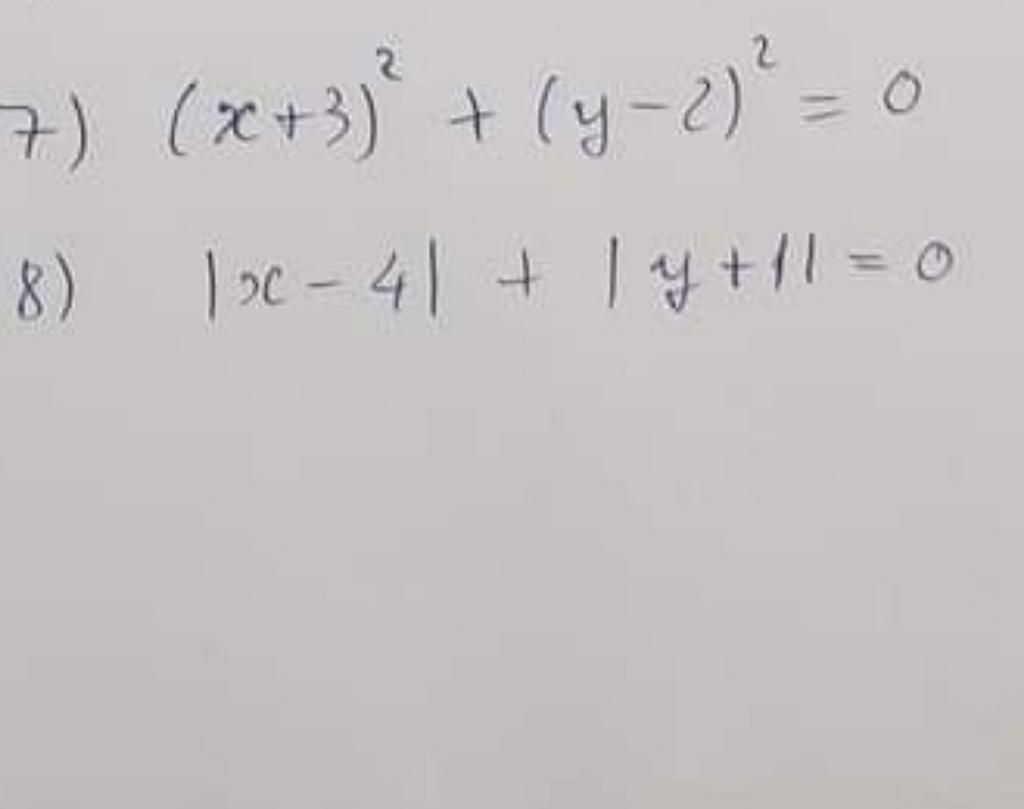 7) (x+3)² + (y-2)² = 0
8) |x-4| + |y+1| = 0